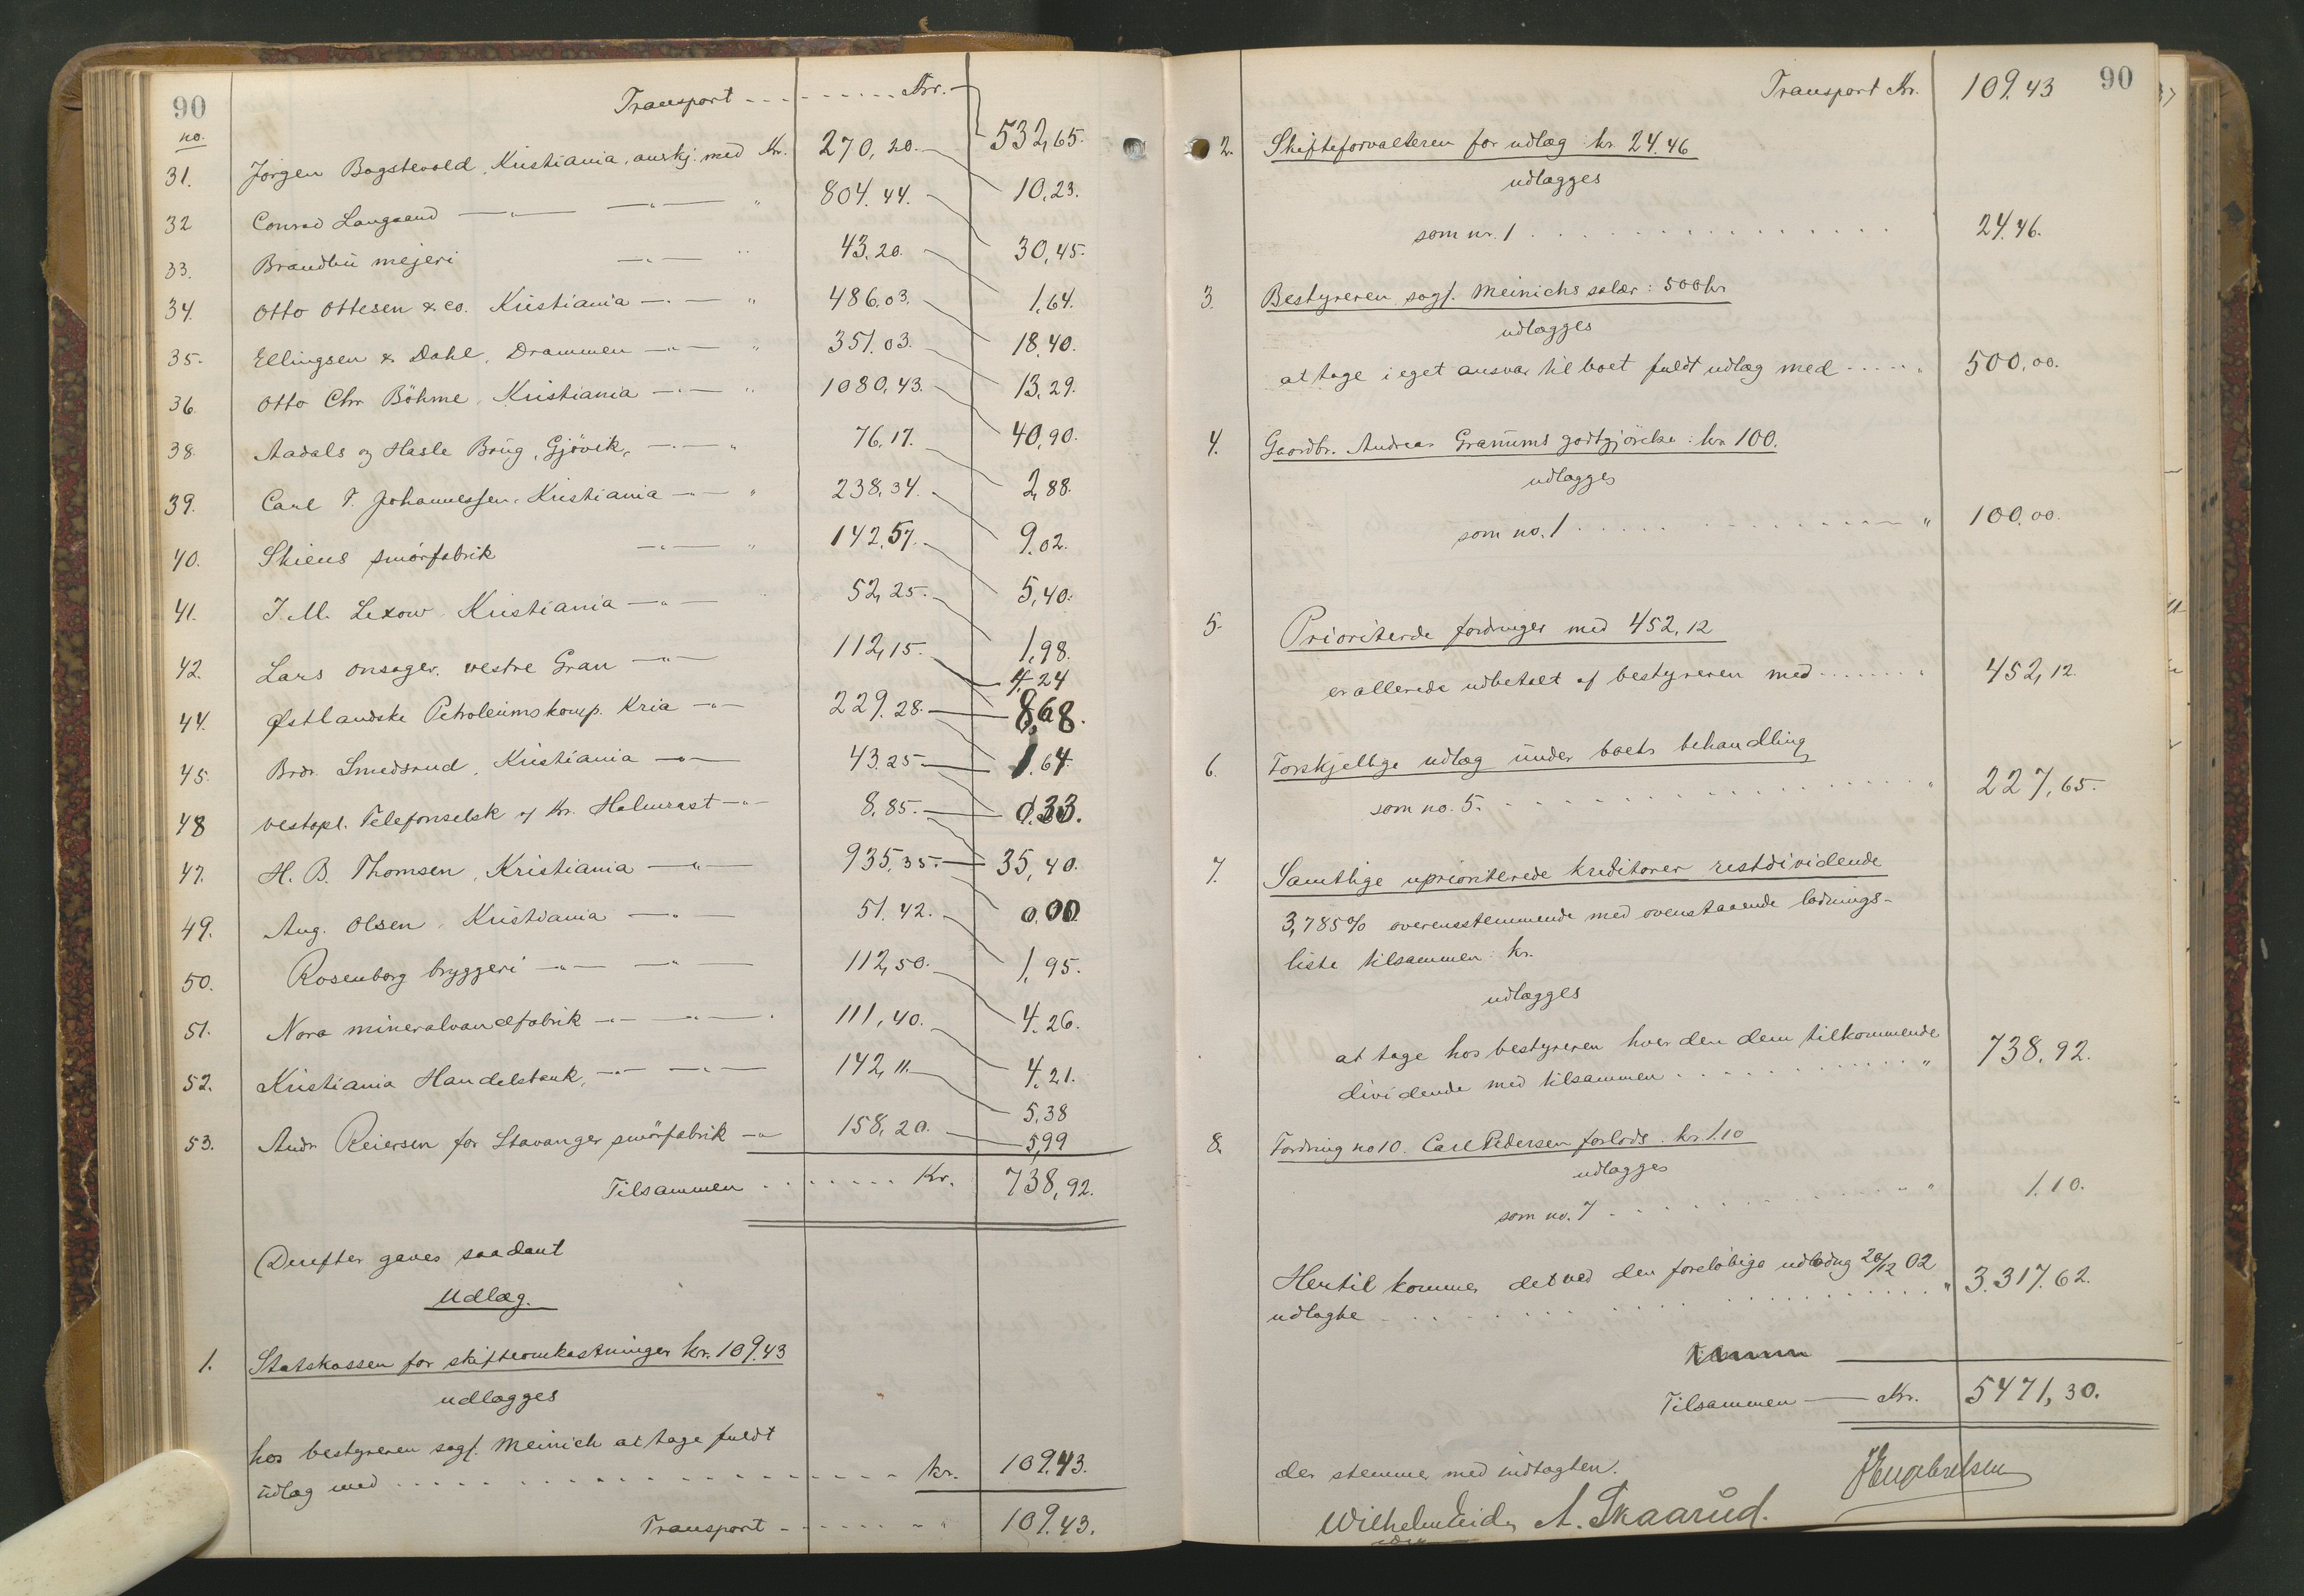 90
Transport - - - - - - - - - Kr. -
532,65.
no.
31. Jörgen Bogstevold, Kristiania, anskj. med Kr. 270,20. 10,23.
32 Conrad Langaard —"— —"— " 804.44. 30,45.
33. Brandbu mejeri —"— " 43,20. 1,64.
34. Otto Ottesen & co. Kristiania —"— " 486,03. 18,40.
35. Ellingsen & Dahl, Drammen —"— " 351.03. 13,29.
36. Otto Chr Böhme, Kristiania —"— " 1080,43. 40,90.
38. Aadals og Hasle Brug, Gjövik, —"— " 76,17. 2,88.
39. Carl T. Johannessen, Kristiania —"— " 238,34. 9.02.
40. Skiens smörfabrik —"— " 142,57. 5,40.
41. J. M. Lexow Kristiania —"— " 52,25. 1,98.
42. Lars Onsager, vestre Gran —"— 112,15. 4,24
44. Østlandske Petroleumskomp. Kria —"— 229.28. 8,68.
45. Brdr. Smedsrud, Kristiania —"— 43.25 1.64.
48 vestopl. Telefonselsk af Kr. Helmrast —"— 8,85. 0.33.
47. H. B. Thomsen, Kristiania —"— 935,35. 35,40.
49. Aug. Olsen, Kristiania —"— 51.42. 0,00
50. Rosenborg bryggeri —"— —"— 112,50. 1,95.
51. Nora mineralvandfabrik —"— —"— 111,40. 4.26.
52. Kristiania Handelsbank, —"— —"— 142,11. 4.21.
5,38
53. Andr Reiersen for Stavanger smörfabrik —"— 158,20. 5,99
Tilsammen . . . . . . . Kr. 738,92.
Derefter gaves saadant
Udlæg.
1. Statskassen for skifteomkostninger kr. 109.43
udlægges
hos bestyreren sagf. Meinich at tage fuldt
udlæg med . . . . . . . . . . kr. 109.43.
Transport - - - - - - - 109.43.
90
Transport Kr. 109.43
2. Skifteforvalteren for udlæg kr 24.46
udlægges
som nr. 1 . . . . . . . . . . 24.46.
3. Bestyreren sagf. Meinichs salær : 500 kr
udlægges
at tage i eget ansvar til boet fuldt udlæg med . . . . . " 500,00.
4. Gaardbr. Andreas Granums godtgjörelse : kr 100.
udlægges
som no. 1 . . . . . . . . . . " 100,00.
5. Prioriterde fordringer med 452,12
er allerede udbetalt af bestyreren med . . . . . . . " 452,12.
6. Forskjellige udlæg under boets behandling
som no. 5. . . . . . . . . . . " 227,65.
7. Samtlige uprioriterede kreditorer restdividende
3,785% overensstemmende med ovenstaaende lodnings-
liste tilsammen kr.
udlægges
at tage hos bestyreren hver den dem tilkommende
dividende med tilsammen . . . . . . . . . . " 738,92.
8. Fordring no 10. Carl Pedersen forlods. kr. 1.10
udlægges
som no. 7 . . . . . . . . . . " 1.10.
Hertil kommer det ved den foreløbige udlodng 20/12 02
udlagte . . . . . . . . . . " 3.317.62.
Tilsammen — Kr. 5471,30.
der stemmer med indtagten.
JEngebretsen
Wilhelm A. Skaarud.